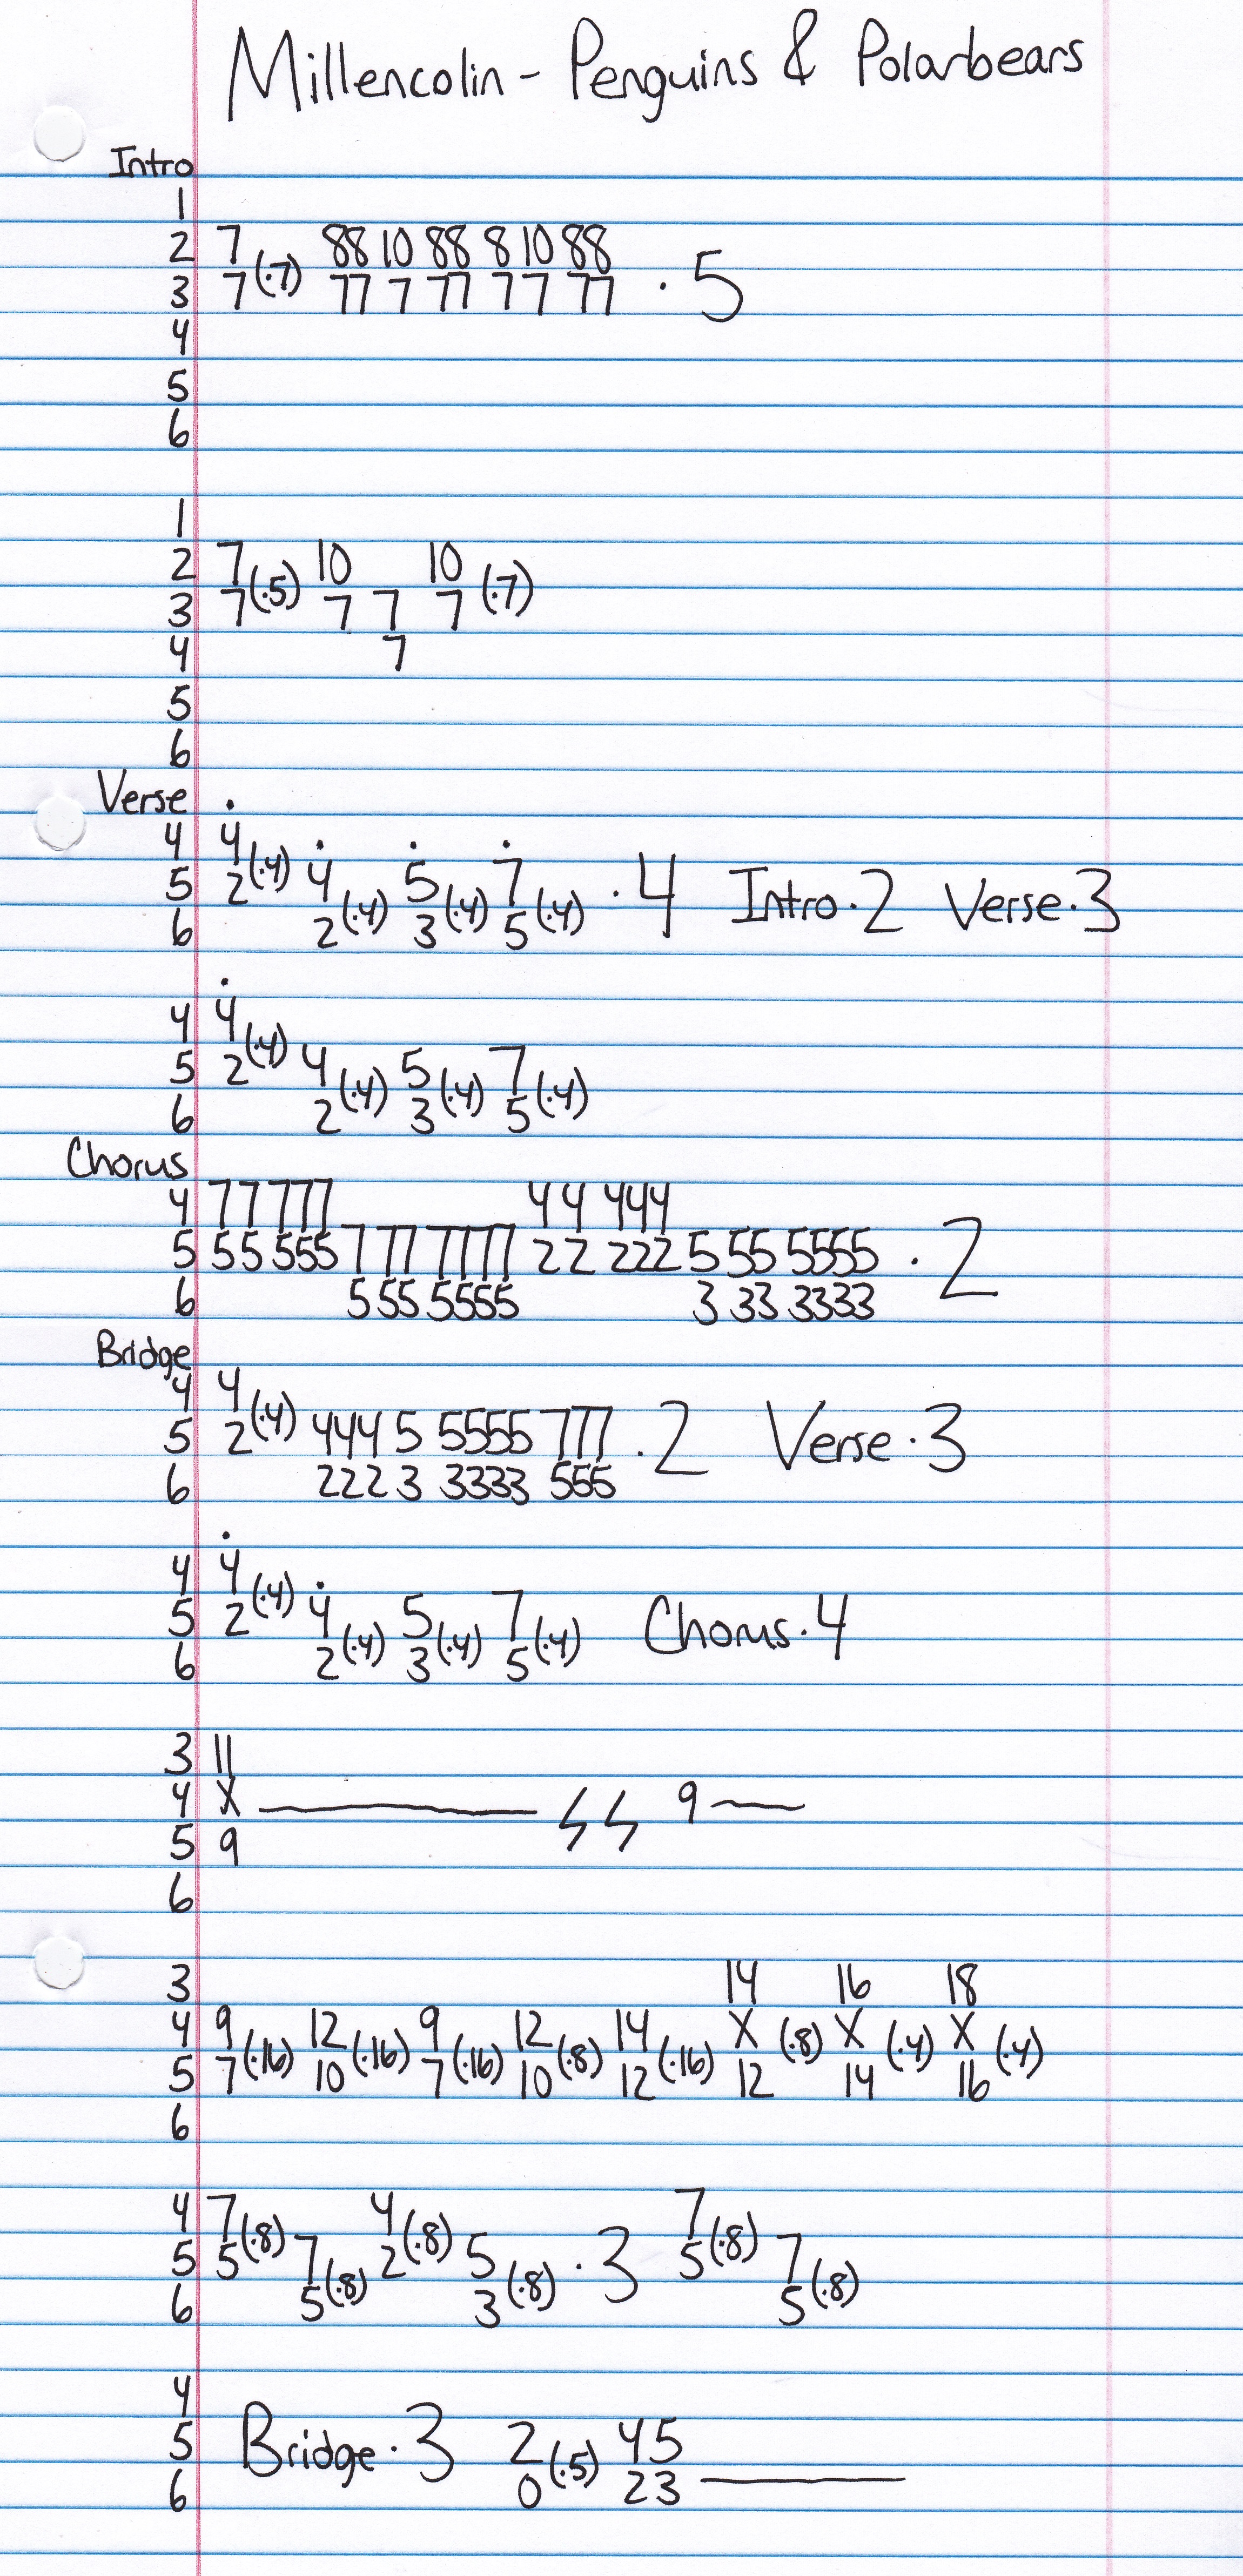 Millencolin - Penguins & Polarbears
Intro
1
2 7 88 10 88 8 10 88
3 7 (·7) 77 7 77 7 7 77 · 5
4
5
6
1
2 7 10 10
3 7 (·5) 7 7 7 (·7)
4 7
5
6
Verse
4 4
5 2 (·4) 4 5 7 · 4 Intro · 2 Verse · 3
6 2 (·4) 3 (·4) 5 (·4)
4 4
5 2 (·4) 4 5 7
6 2 (·4) 3 (·4) 5 (·4)
Chorus
4 77 777 44 444
5 55 555 7 77 7777 22 222 5 55 5555 · 2
6 5 55 5555 3 33 3333
Bridge
4 4
5 2 (·4) 444 5 5555 777 · 2 Verse · 3
6 222 3 3333 555
4 4
5 2 (·4) 4 5 7 Chorus · 4
6 2 (·4) 3 (·4) 5 (·4)
3 11
4 X 9
5 9
6
3 14 16 18
4 9 12 9 12 14 X X X
5 7 (·16) 10 (·16) 7 (·16) 10 (·8) 12 (·16) 12 (·8) 14 (·4) 16 (·4)
6
4 7 4 7
5 5 (·8) 7 2 (·8) 5 · 3 5 (·8) 7
6 5 (·8) 3 (·8) 5 (·8)
4
5 Bridge · 3 2 (·5) 45
6 0 23